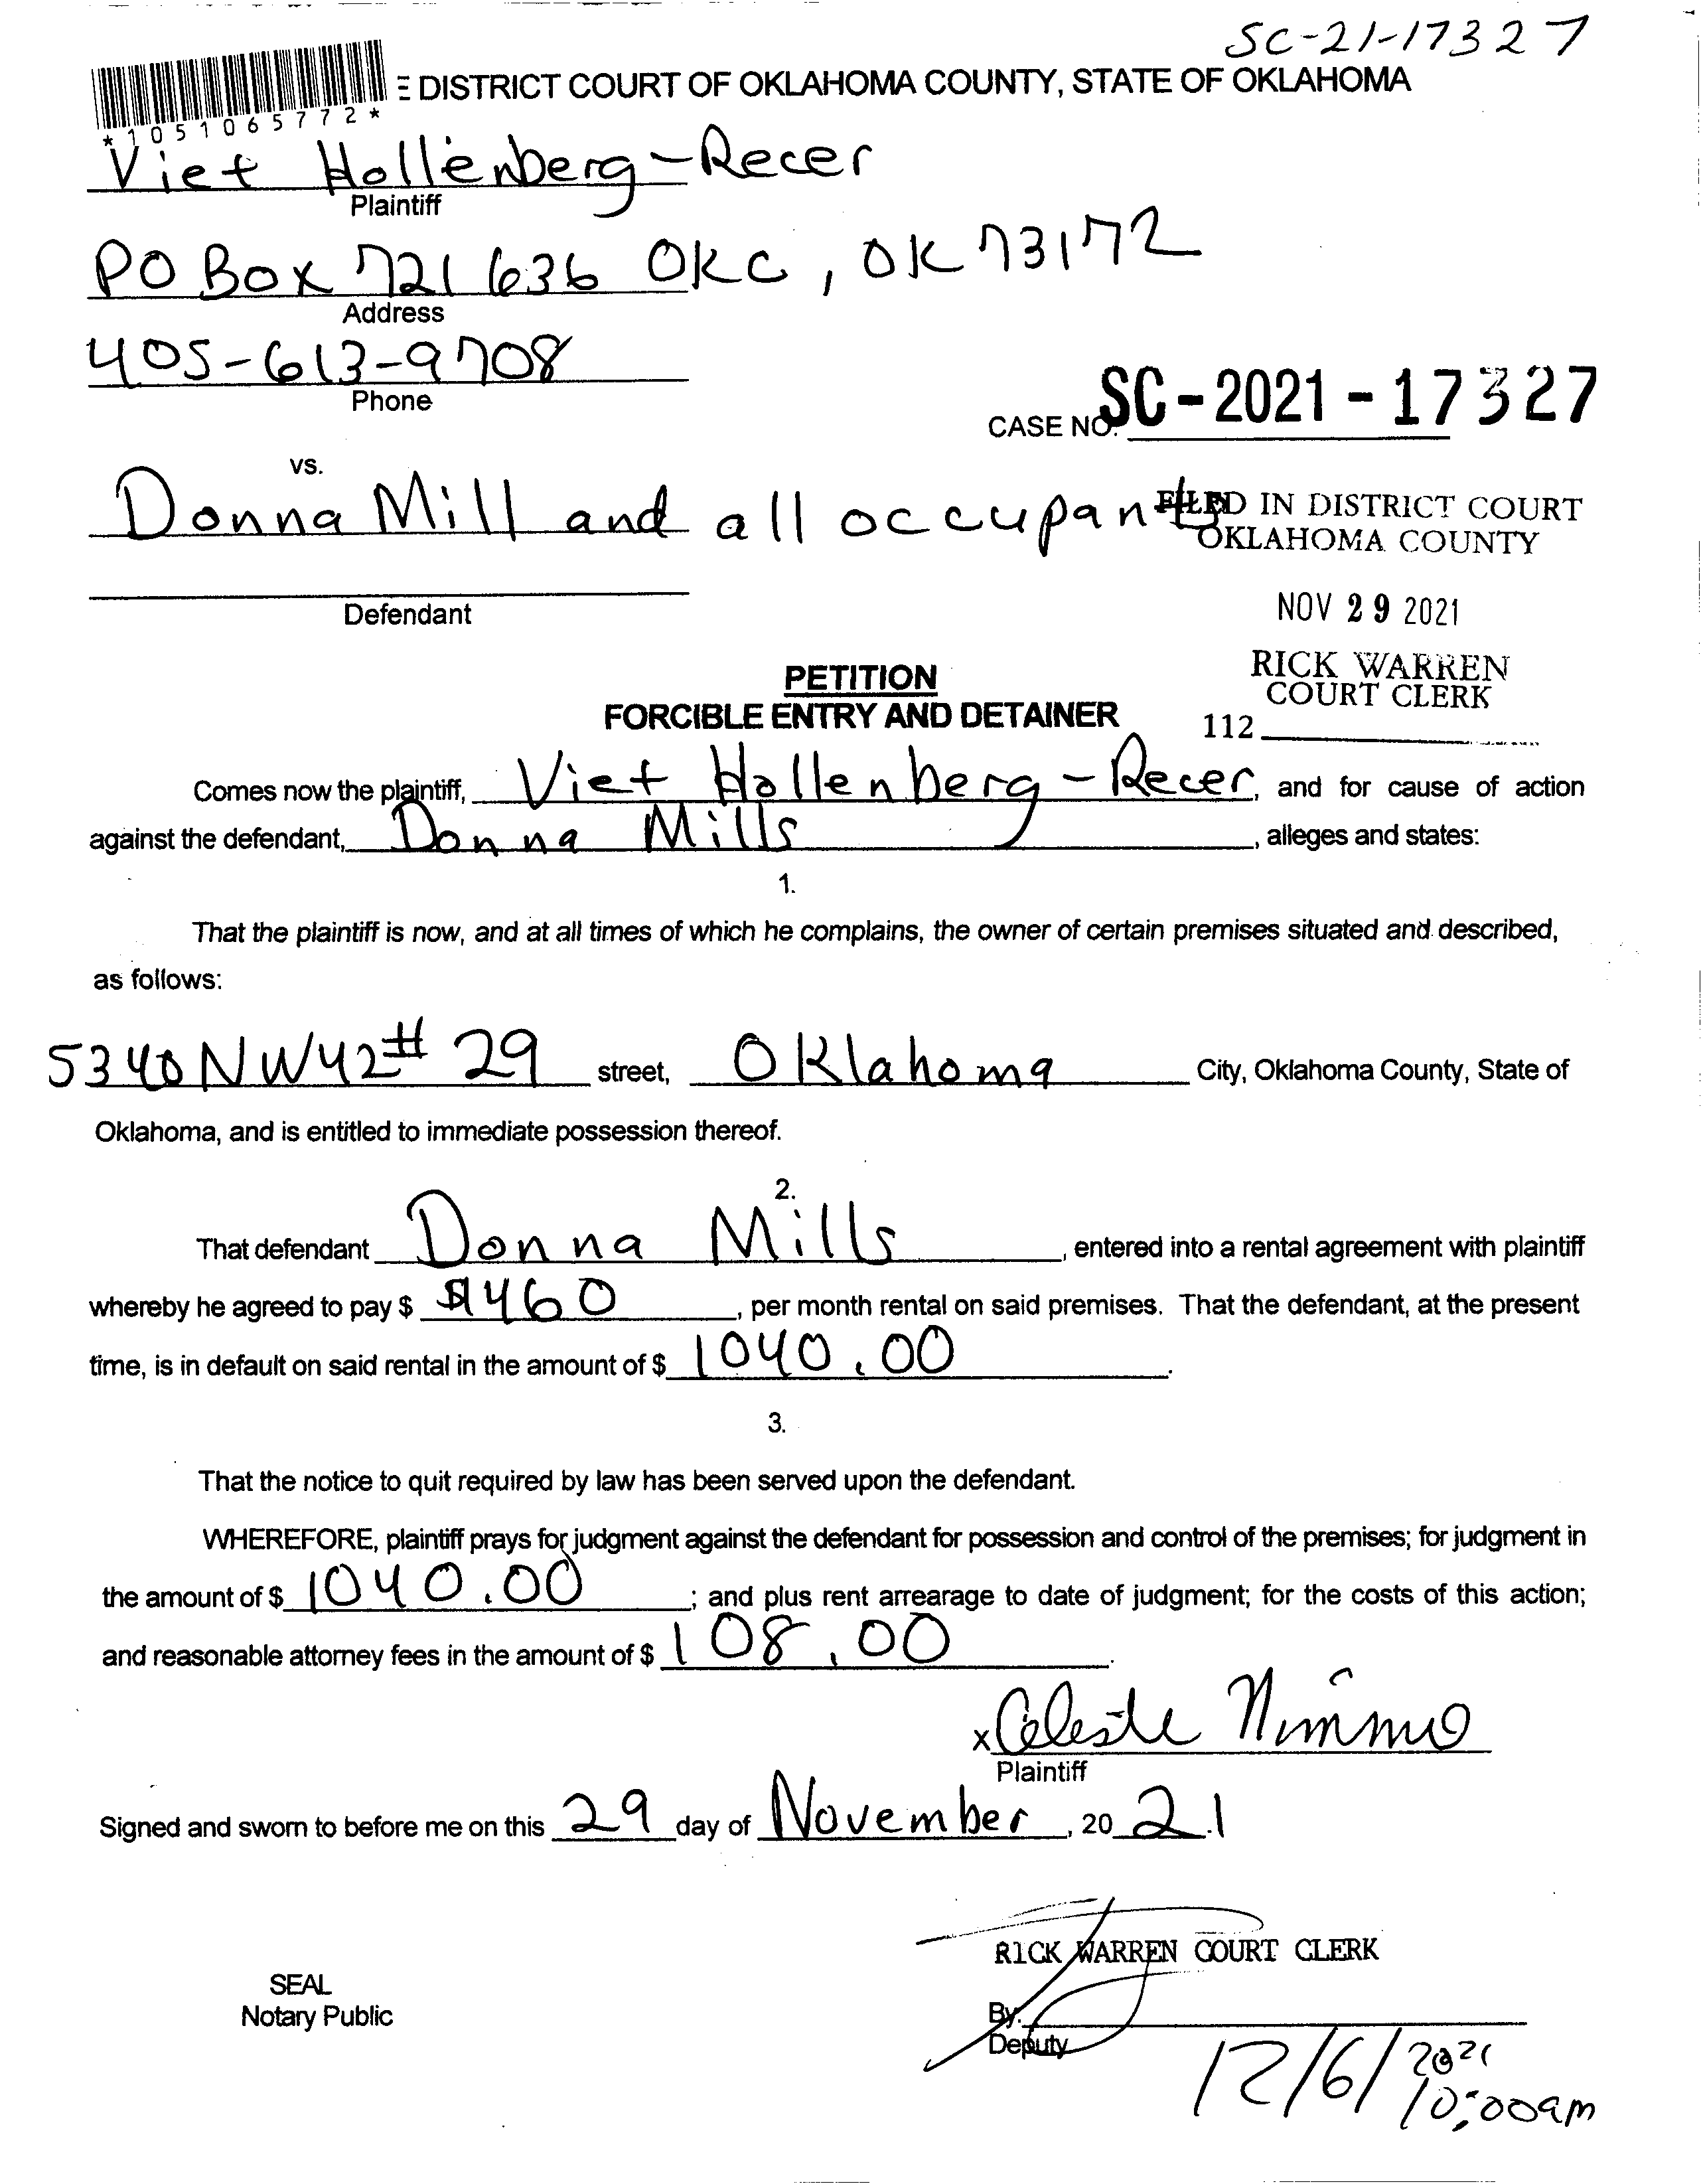 SC-21-17327
E DISTRICT COURT OF OKLAHOMA COUNTY, STATE OF OKLAHOMA
*1051065772*
Viet Hollenberg-Recer
Plaintiff
PO Box 721636 OKC, OK 73172
Address
405-613-9708
Phone
CASE NO. SC-2021-17327
vs.
Donna Mill and all occupants
FILED IN DISTRICT COURT
OKLAHOMA COUNTY
Defendant
NOV 29 2021
RICK WARREN
COURT CLERK
112
PETITION
FORCIBLE ENTRY AND DETAINER
Comes now the plaintiff, Viet Hollenberg-Recer, and for cause of action
against the defendant, Donna Mills, alleges and states:
1.
That the plaintiff is now, and at all times of which he complains, the owner of certain premises situated and described,
as follows:
5340 NW42# 29 street, Oklahoma City, Oklahoma County, State of
Oklahoma, and is entitled to immediate possession thereof.
2.
That defendant Donna Mills, entered into a rental agreement with plaintiff
whereby he agreed to pay $ $460, per month rental on said premises. That the defendant, at the present
time, is in default on said rental in the amount of $ 1040.00.
3.
That the notice to quit required by law has been served upon the defendant.
WHEREFORE, plaintiff prays for judgment against the defendant for possession and control of the premises; for judgment in
the amount of $ 1040.00; and plus rent arrearage to date of judgment; for the costs of this action;
and reasonable attorney fees in the amount of $ 108.00.
x Celeste Nimmo
Plaintiff
Signed and sworn to before me on this 29 day of November, 20 21
RICK WARREN COURT CLERK
SEAL
Notary Public
By:
Deputy
12/6/2021
10:00am